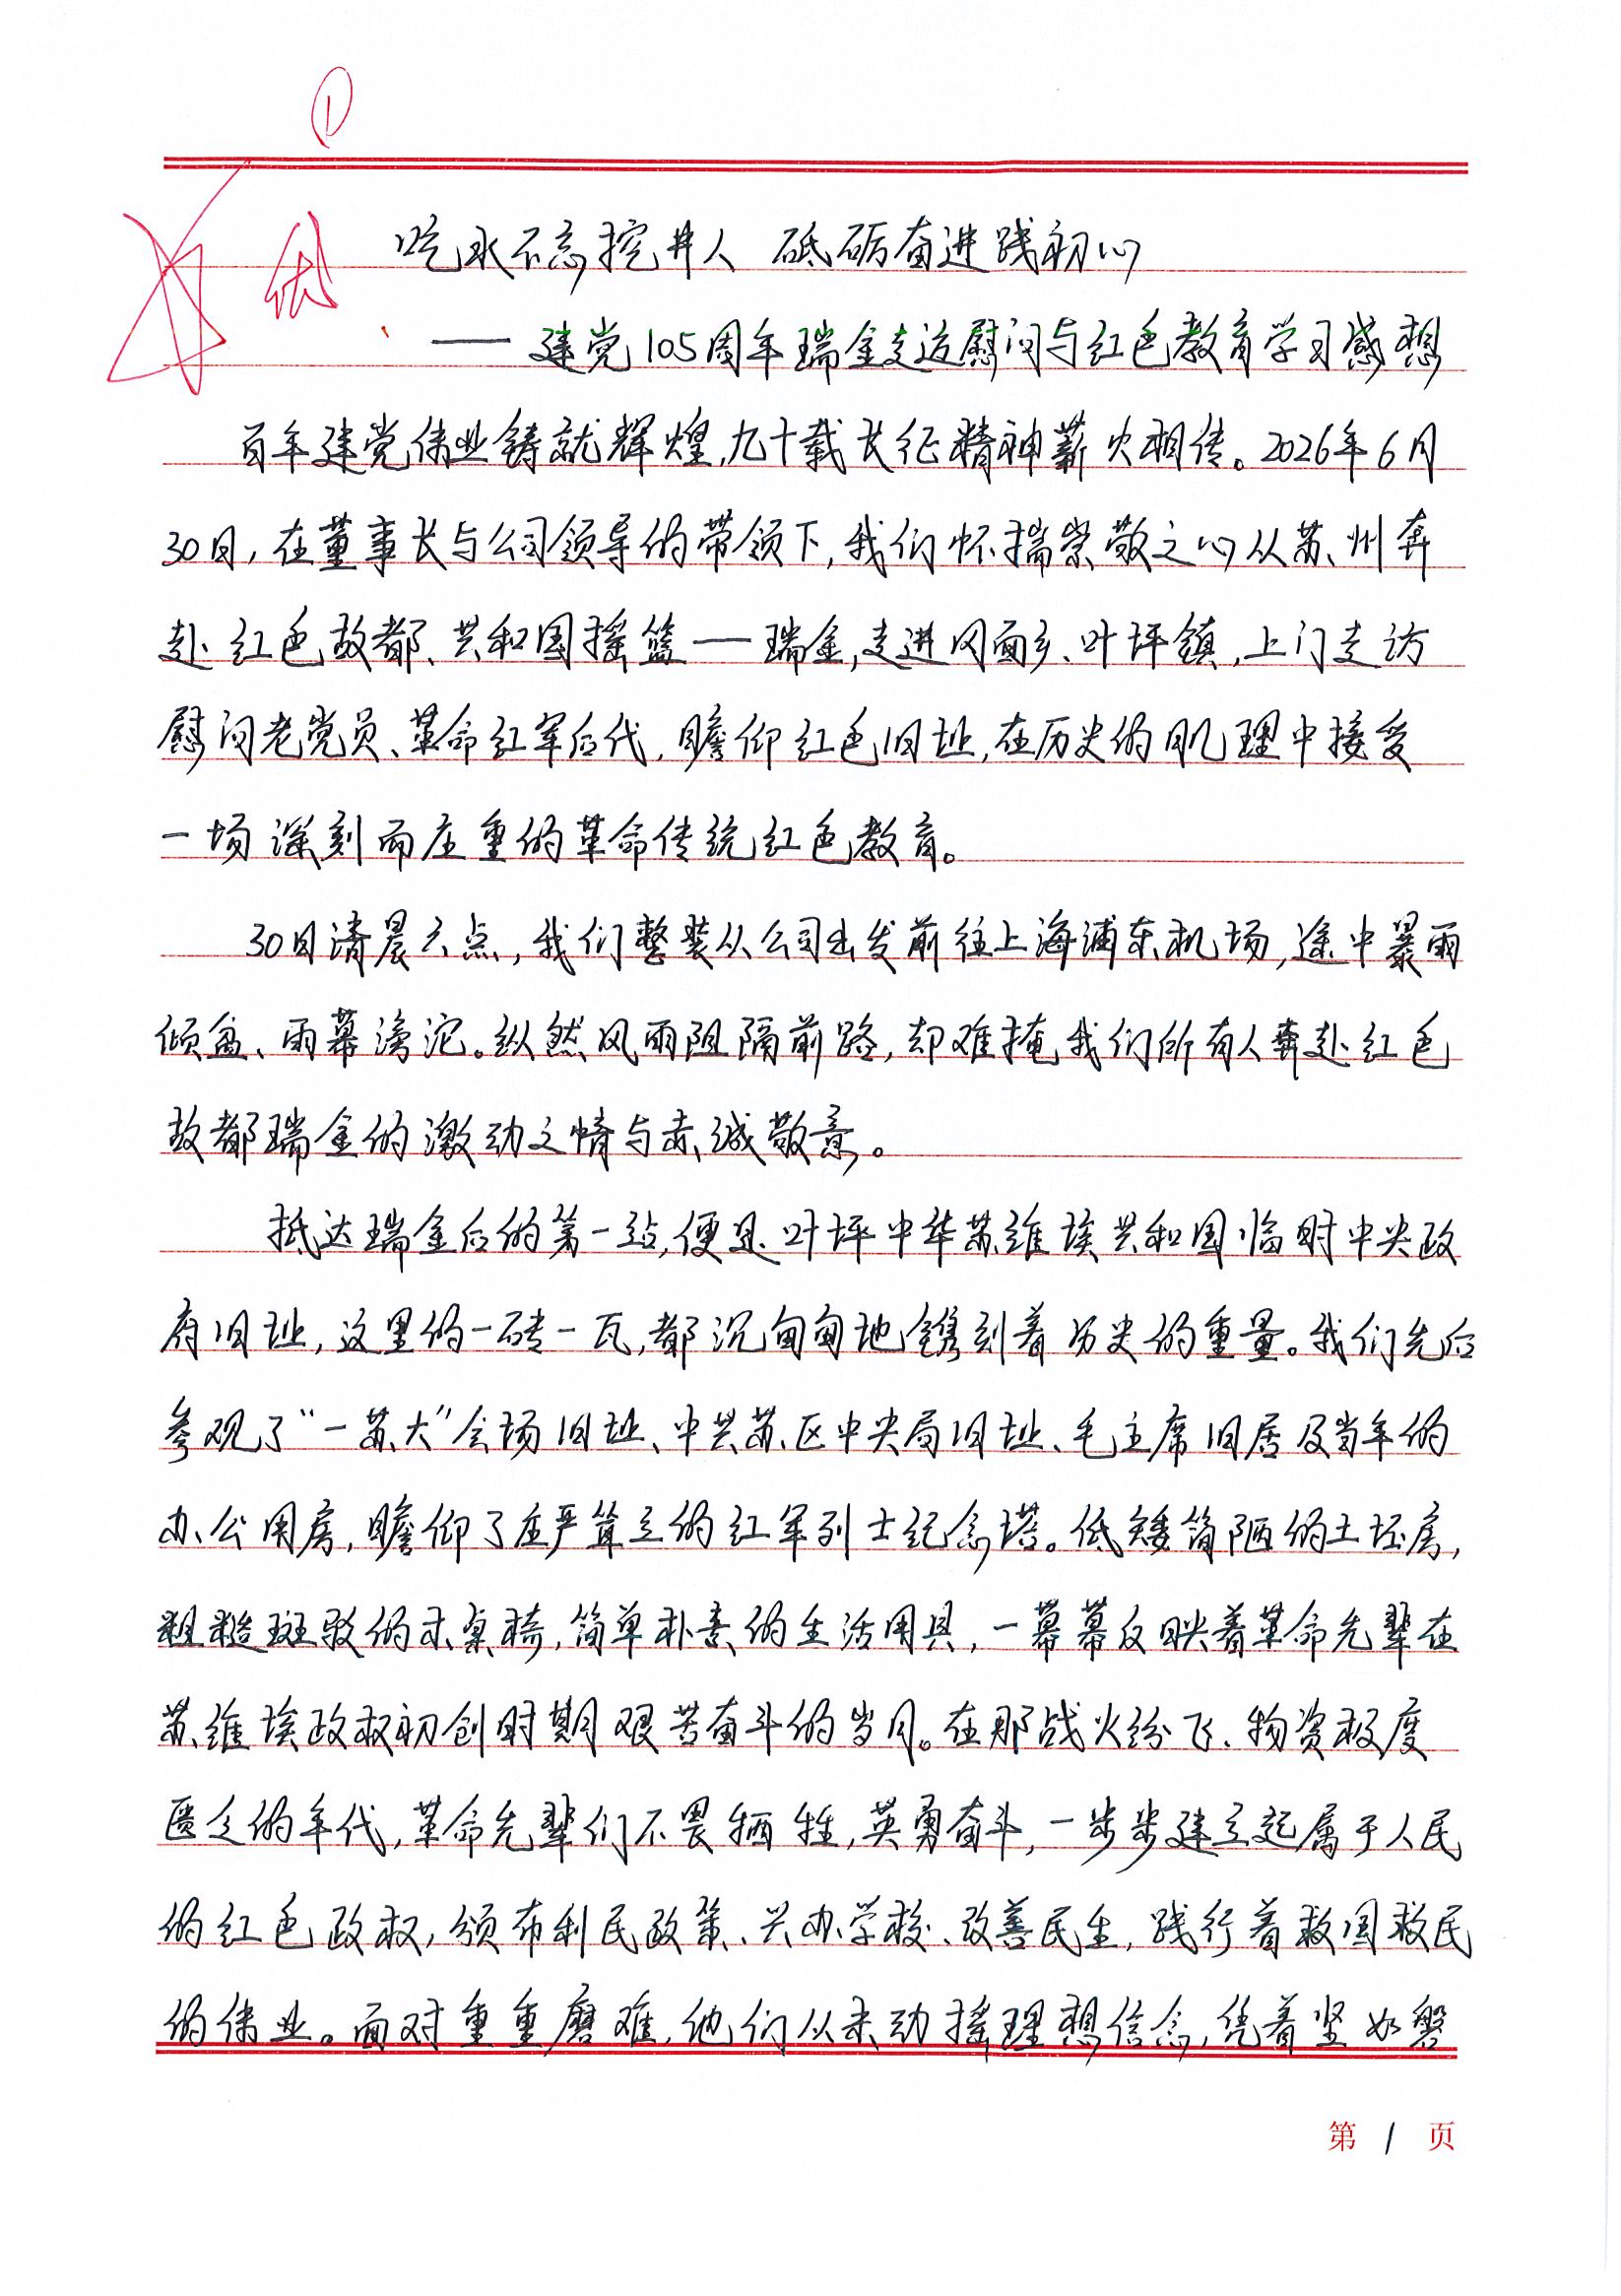 ①
优
吃水不忘挖井人 砥砺奋进践初心
——建党105周年瑞金走访慰问与红色教育学习感想
百年建党伟业铸就辉煌,九十载长征精神薪火相传。2026年6月
30日,在董事长与公司领导的带领下,我们怀揣崇敬之心从苏州奔
赴红色故都、共和国摇篮——瑞金,走进冈面乡、叶坪镇,上门走访
慰问老党员、革命红军后代,瞻仰红色旧址,在历史的肌理中接受
一场深刻而庄重的革命传统红色教育。
30日清晨六点,我们整装从公司出发前往上海浦东机场,途中暴雨
倾盆、雨幕滂沱。纵然风雨阻隔前路,却难掩我们所有人奔赴红色
故都瑞金的激动之情与赤诚敬意。
抵达瑞金后的第一站,便是叶坪中华苏维埃共和国临时中央政
府旧址,这里的一砖一瓦,都沉甸甸地镌刻着历史的重量。我们先后
参观了“一苏大”会场旧址、中共苏区中央局旧址、毛主席旧居及当年的
办公用房,瞻仰了庄严耸立的红军烈士纪念塔。低矮简陋的土坯房,
粗糙斑驳的木桌椅,简单朴素的生活用具,一幕幕反映着革命先辈在
苏维埃政权初创时期艰苦奋斗的岁月。在那战火纷飞、物资极度
匮乏的年代,革命先辈们不畏牺牲,英勇奋斗,一步步建立起属于人民
的红色政权,颁布利民政策、兴办学校、改善民生,践行着救国救民
的伟业。面对重重磨难,他们从未动摇理想信念,凭着坚如磐
第1页